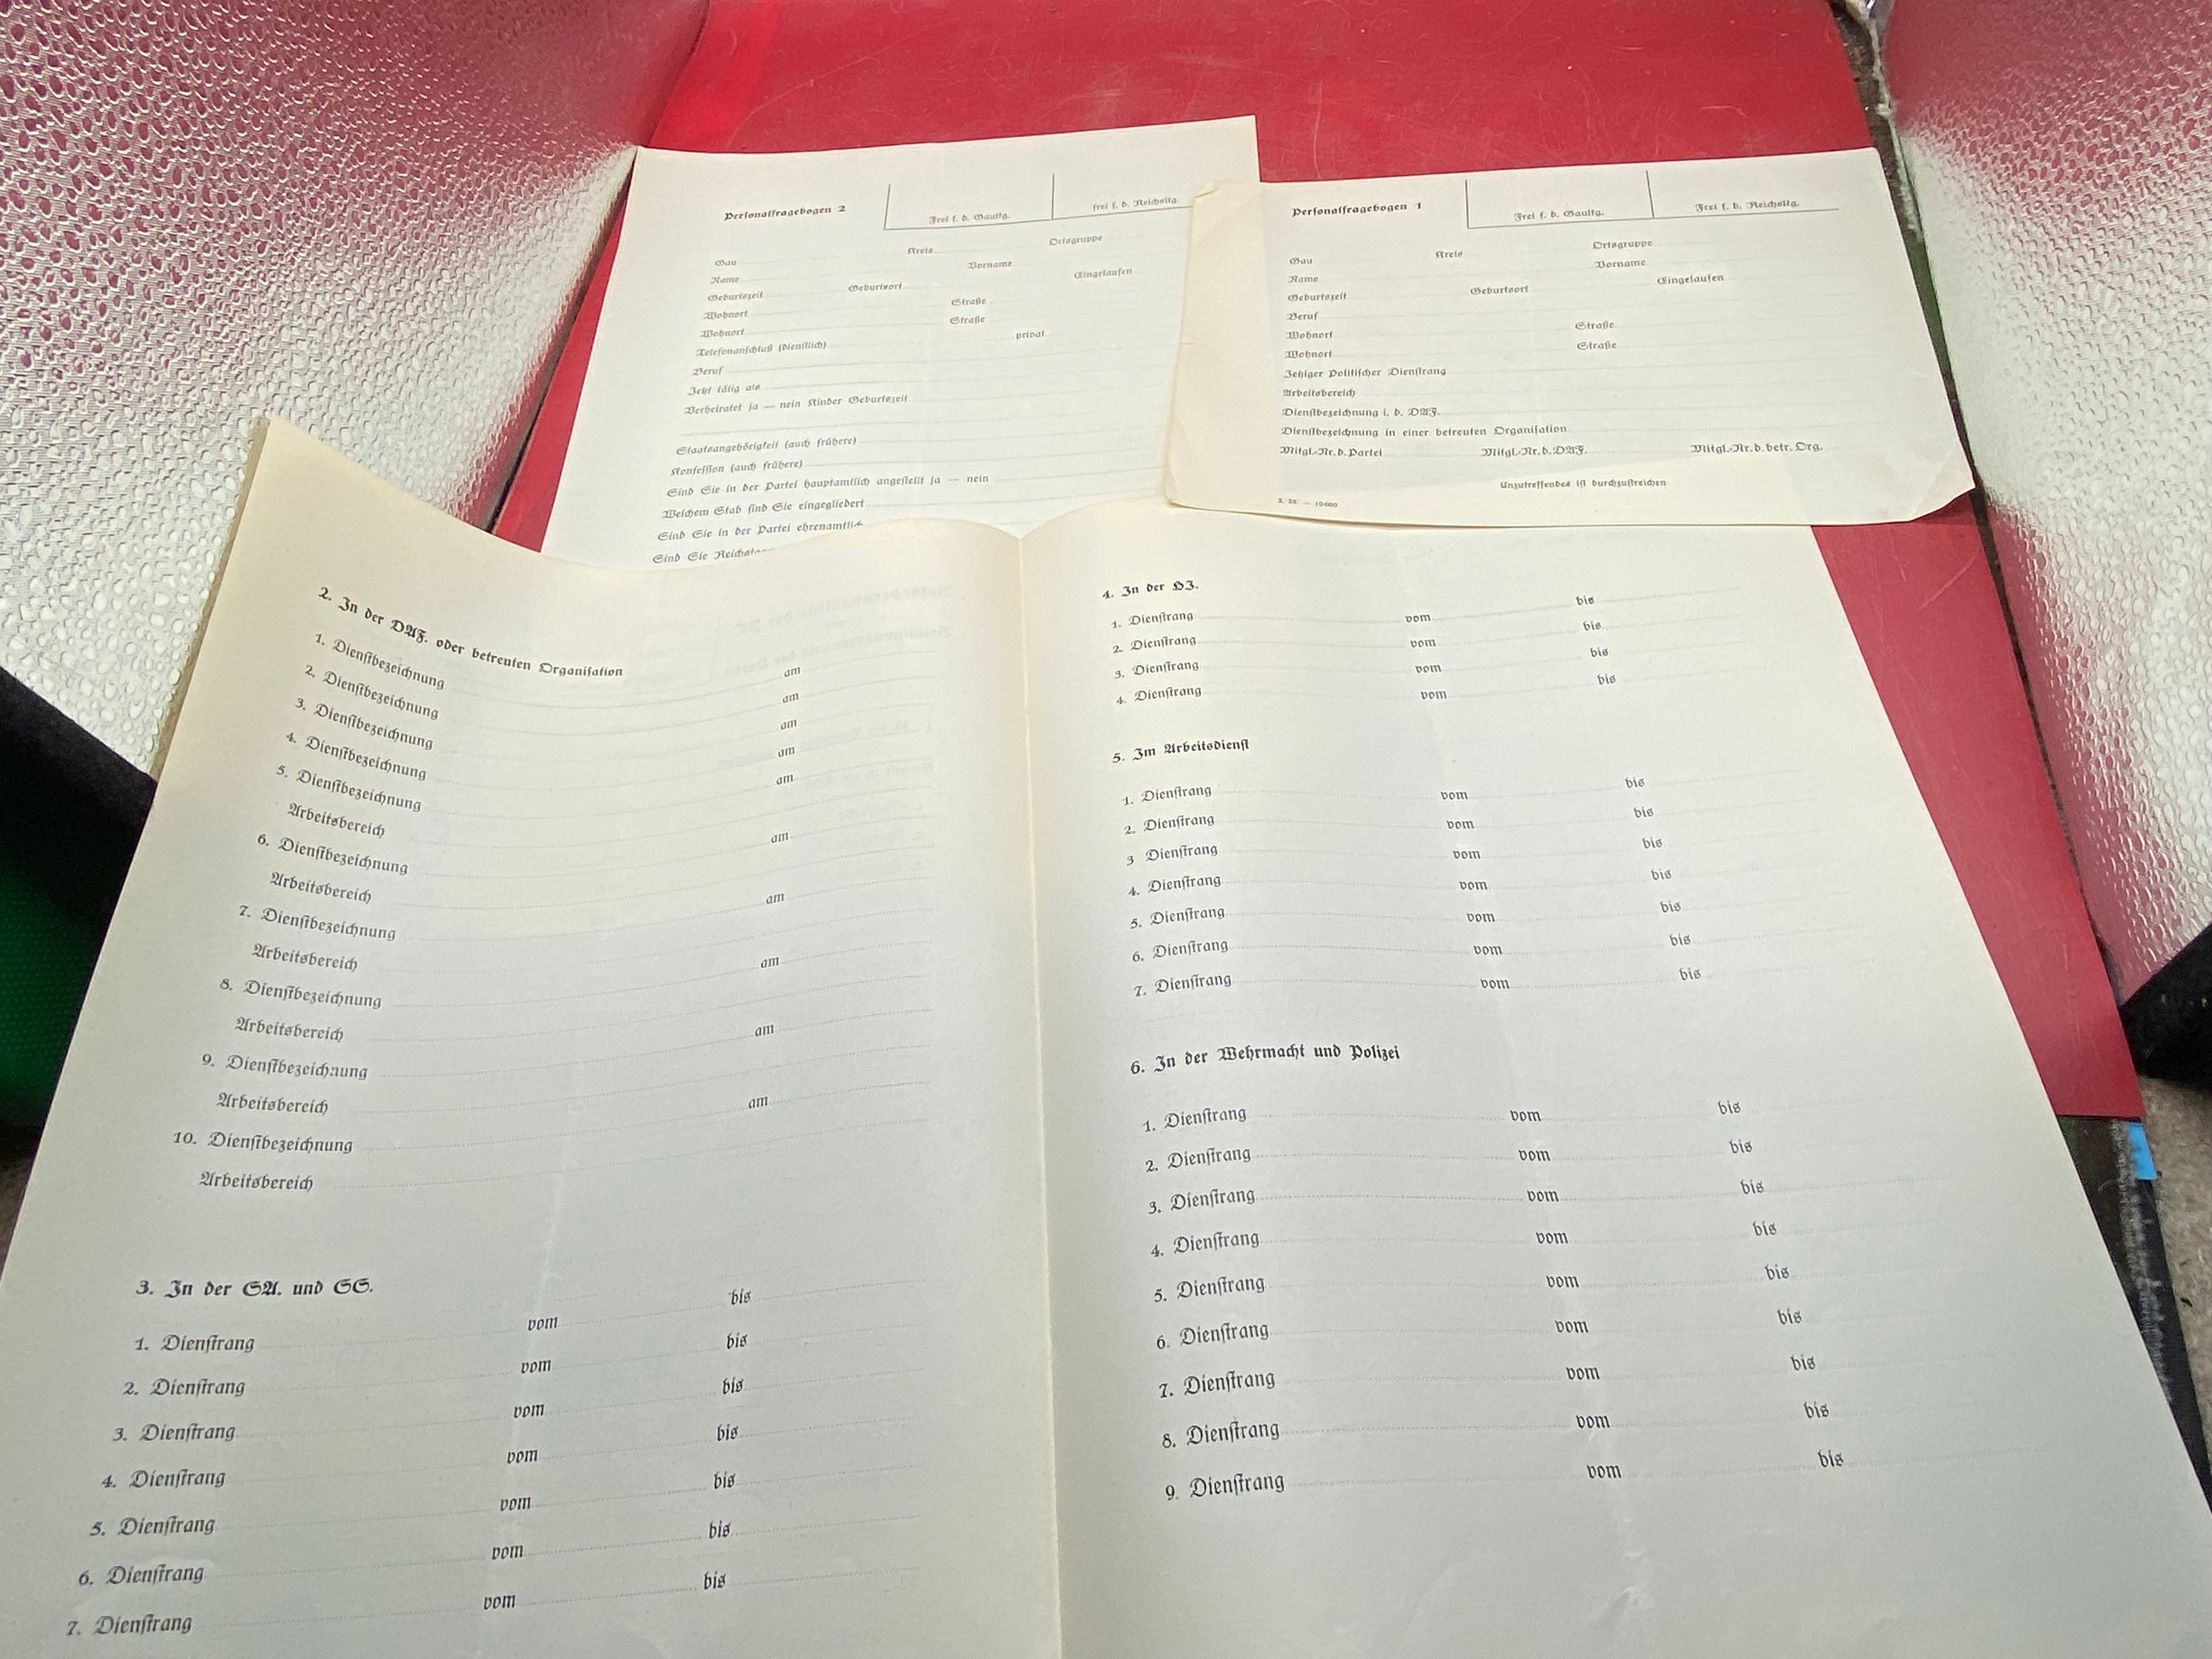 Personalfragebogen 2
Frei f. d. Gaultg.
frei f. d. Reichsltg.
Gau Kreis Ortsgruppe
Name Vorname
Geburtszeit Geburtsort Eingelaufen
Wohnort Straße
Wohnort Straße
Telefonanschluß (dienstlich) privat
Beruf
Jetzt tätig als
Verheiratet ja — nein Kinder Geburtszeit
Staatsangehörigkeit (auch frühere)
Konfession (auch frühere)
Sind Sie in der Partei hauptamtlich angestellt ja — nein
Welchem Stab sind Sie eingegliedert
Sind Sie in der Partei ehrenamtlich
Sind Sie
Personalfragebogen 1
Frei f. d. Gaultg.
Frei f. d. Reichsltg.
Gau Kreis Ortsgruppe
Name Vorname
Geburtszeit Geburtsort Eingelaufen
Beruf
Wohnort Straße
Wohnort Straße
Jetziger Politischer Dienstrang
Arbeitsbereich
Dienstbezeichnung i. d. DAF.
Dienstbezeichnung in einer betreuten Organisation
Mitgl.-Nr. d. Partei Mitgl.-Nr. d. DAF. Mitgl.-Nr. d. betr. Org.
Unzutreffendes ist durchzustreichen
2. In der DAF. oder betreuten Organisation
1. Dienstbezeichnung am
2. Dienstbezeichnung am
3. Dienstbezeichnung am
4. Dienstbezeichnung am
5. Dienstbezeichnung am
Arbeitsbereich
6. Dienstbezeichnung am
Arbeitsbereich
7. Dienstbezeichnung am
Arbeitsbereich
8. Dienstbezeichnung am
Arbeitsbereich
9. Dienstbezeichnung am
Arbeitsbereich
10. Dienstbezeichnung am
Arbeitsbereich
3. In der SA. und SS.
1. Dienstrang vom bis
2. Dienstrang vom bis
3. Dienstrang vom bis
4. Dienstrang vom bis
5. Dienstrang vom bis
6. Dienstrang vom bis
7. Dienstrang vom bis
4. In der HJ.
1. Dienstrang vom bis
2. Dienstrang vom bis
3. Dienstrang vom bis
4. Dienstrang vom bis
5. Im Arbeitsdienst
1. Dienstrang vom bis
2. Dienstrang vom bis
3 Dienstrang vom bis
4. Dienstrang vom bis
5. Dienstrang vom bis
6. Dienstrang vom bis
7. Dienstrang vom bis
6. In der Wehrmacht und Polizei
1. Dienstrang vom bis
2. Dienstrang vom bis
3. Dienstrang vom bis
4. Dienstrang vom bis
5. Dienstrang vom bis
6. Dienstrang vom bis
7. Dienstrang vom bis
8. Dienstrang vom bis
9. Dienstrang vom bis